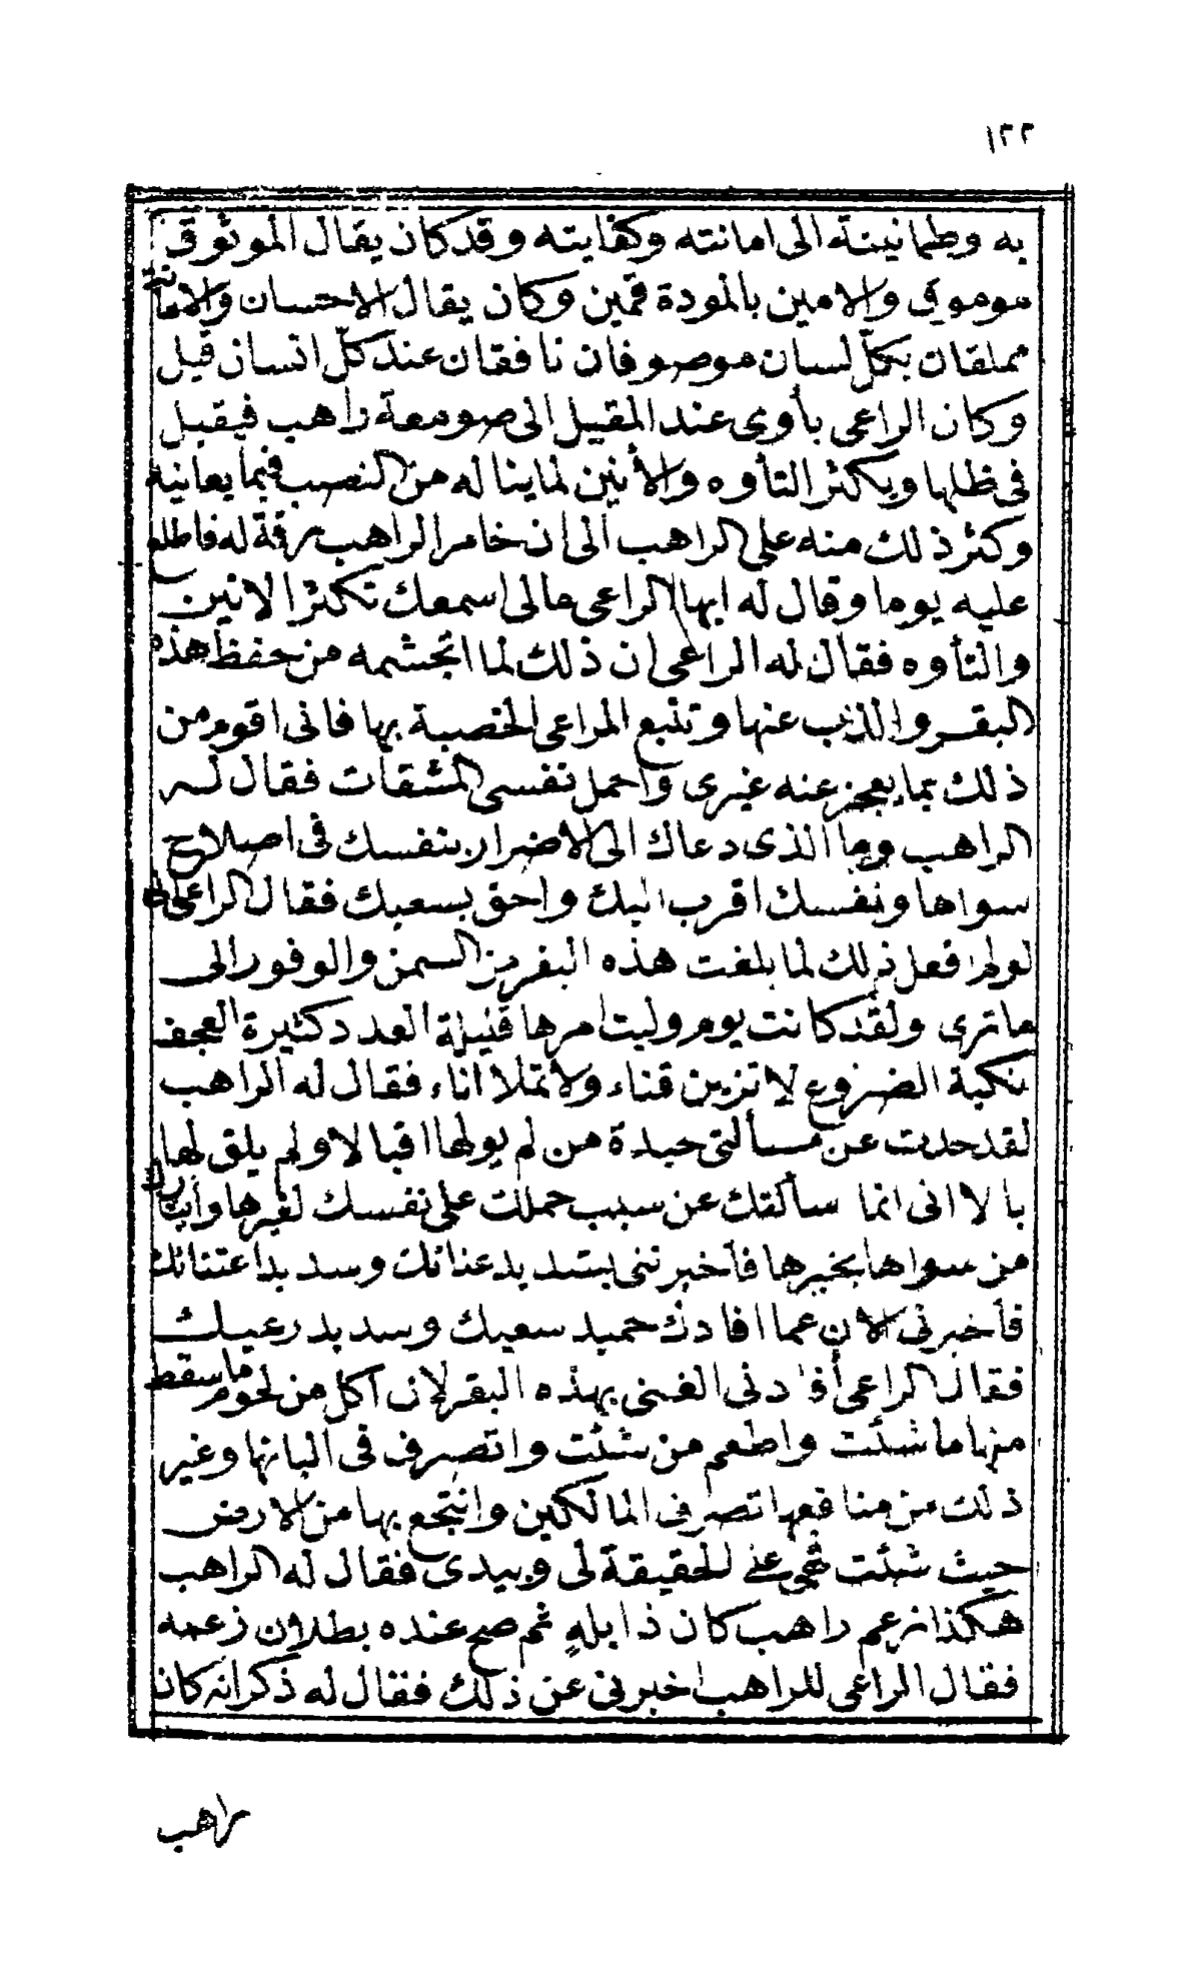 ١٢٢
به وطمانينة الى امانته وكفايته وقد كان يقال الموثوق
موموق والامين بالمودة قمين وكان يقال الاحسان والامانة
مملقان بكلّ لسان موصوفان نافقان عند كلّ انسان قيل
وكان الراعى يأوى عند المقيل الى صومعة راهب فيقيل
فى ظلها ويكثر التأوه والأنين لما يناله من النصب فيما يعانيه
وكثر ذلك منه على الراهب الى ان خامر الراهب رقة له فاطلع
عليه يوما وقال له ايها الراعى مالى اسمعك تكثر الانين
والتأوه فقال له الراعى ان ذلك لما اتجشمه من حفظ هذه
البقر والذب عنها وتتبع المراعى الخصبة بها فانى اقوم من
ذلك بما يعجز عنه غيرى واحمل نفسى المشقات فقال له
الراهب وما الذى دعاك الى الاضرار بنفسك فى اصلاح
سواها ونفسك اقرب اليك واحق بسعيك فقال الراعى انى
لو لم افعل ذلك لما بلغت هذه البقر من السمن والوفور الى
ما ترى ولقد كانت يوم وليت امرها قليلة العدد كثيرة العجف
نكية الضروع لا تزين قناء ولا تملأ اناء فقال له الراهب
لقد حدت عن مسألتى حيدة من لم يولها اقبالا ولم يلق لها
بالا انى انما سألتك عن سبب حملك على نفسك لغيرها وايثارك
من سواها بخيرها فأخبرتنى بشديد عنائك وسديد اعتنائك
فأخبرنى الان عما افادك حميد سعيك وسديد رعيك
فقال الراعى أفادنى الغنى بهذه البقر لانى آكل من لحوم ما سقط
منها ما شئت واطعم من شئت واتصرف فى البانها وغير
ذلك من منافعها تصرف المالكين وانتجع بها من الارض
حيث شئت فهى على الحقيقة لى وبيدى فقال له الراهب
هكذا زعم راهب كان ذا بلهٍ ثم صح عنده بطلان زعمه
فقال الراعى للراهب اخبرنى عن ذلك فقال له ذكر انه كان
راهب